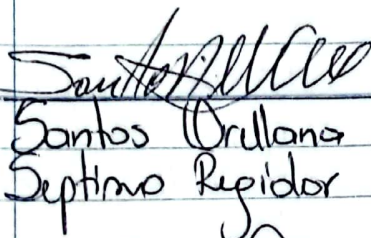 Santos Orellana
Septimo Regidor